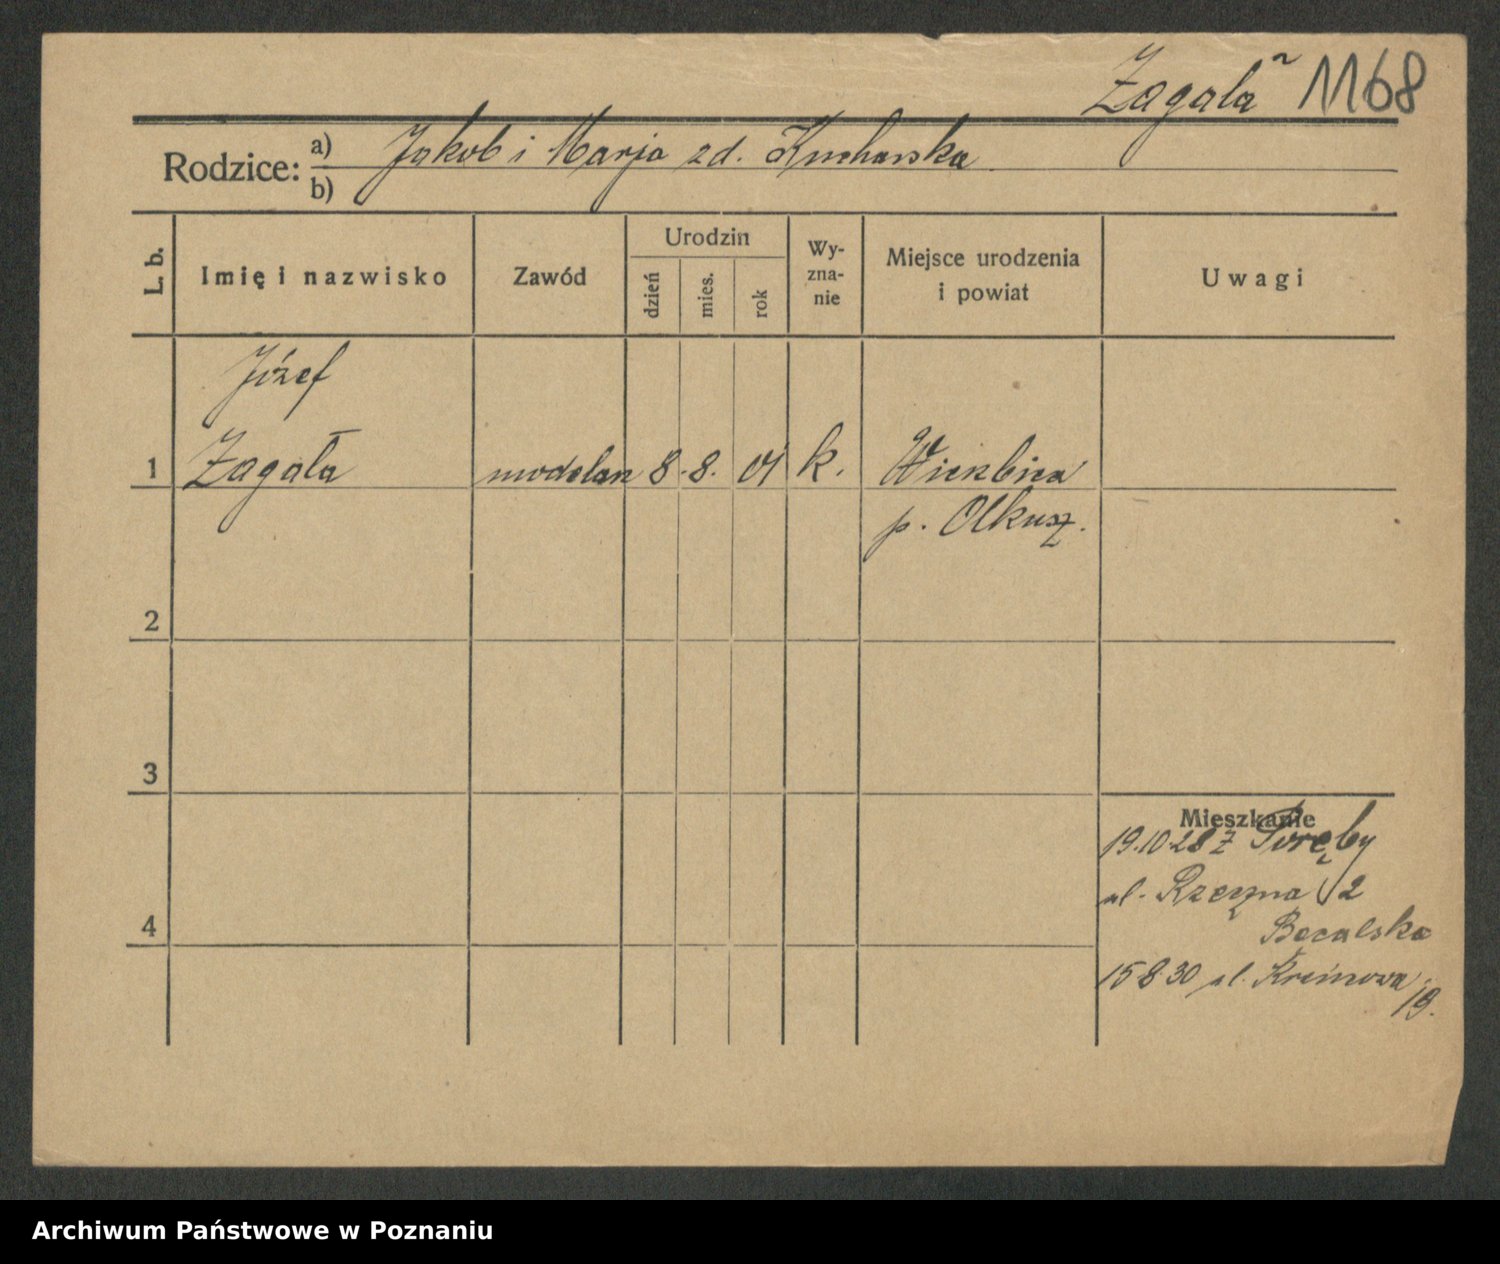 Zagała 1168
Rodzice: a) Jakob i Marja zd. Kucharska
b)
L. b.
Imię i nazwisko
Zawód
Urodzin
dzień
mies.
rok
Wy-
zna-
nie
Miejsce urodzenia
i powiat
Uwagi
Józef
1 Zagała modelarz 8. 8. 01 k. Wierzbica
p. Olkusz.
2
3
Mieszkanie
19.10.28 z Poręby
ul. Rzeczna 2
4
15 8 30 ul.
19.
Archiwum Państwowe w Poznaniu